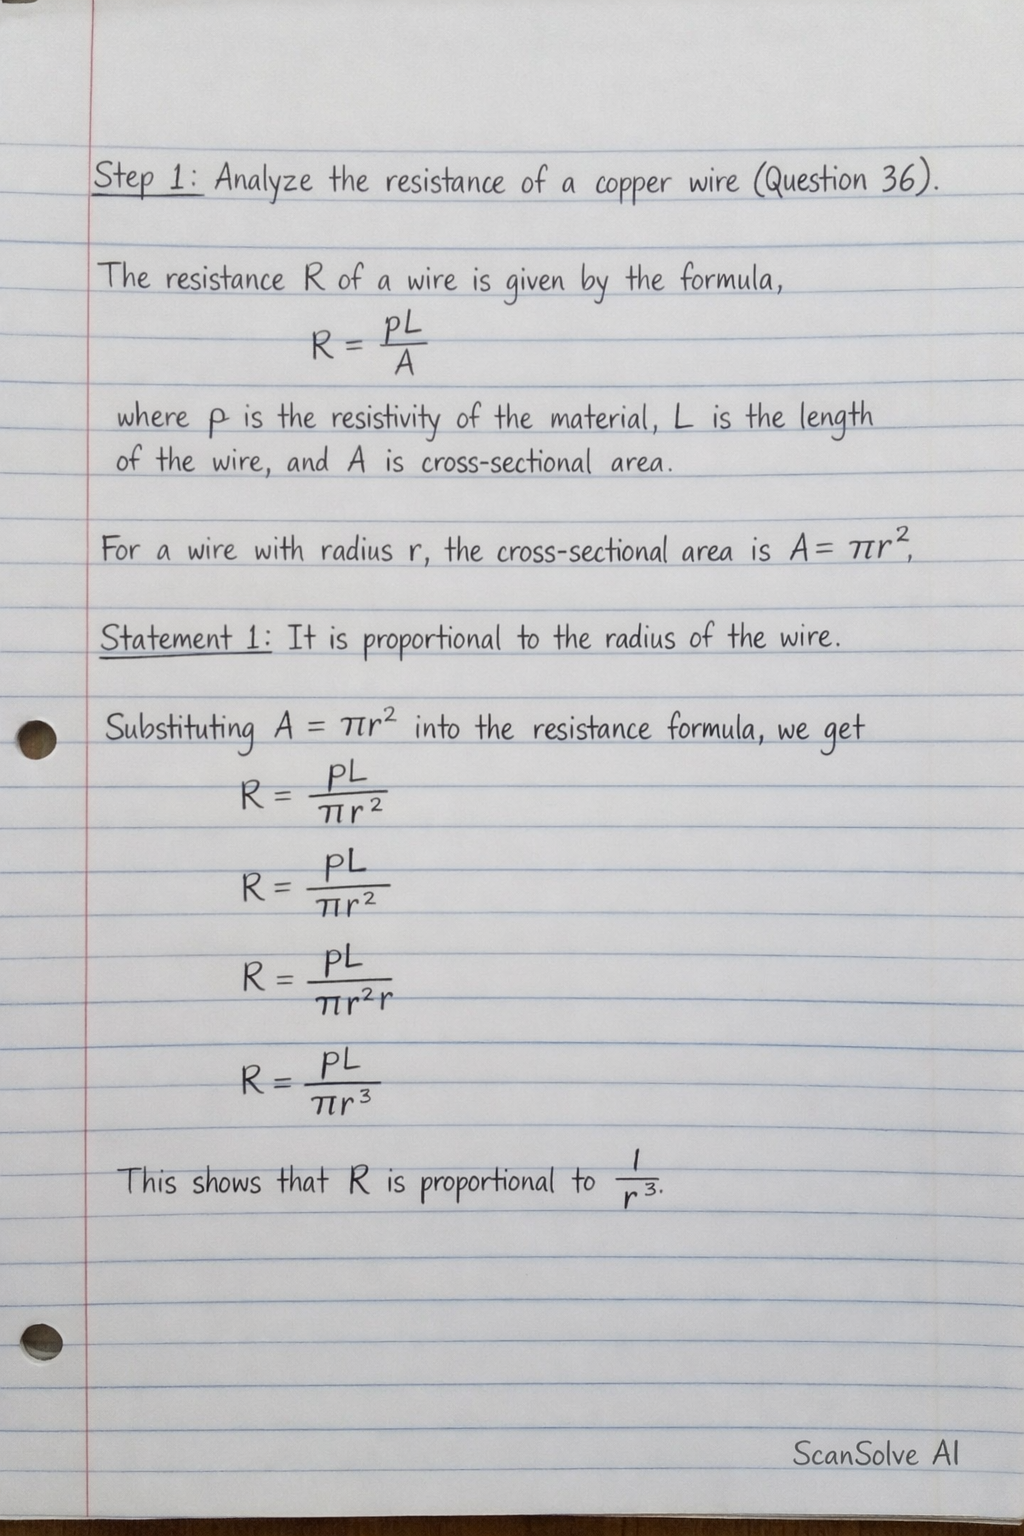 Step 1: Analyze the resistance of a copper wire (Question 36).
The resistance R of a wire is given by the formula,
R = pL/A
where ρ is the resistivity of the material, L is the length
of the wire, and A is cross-sectional area.
For a wire with radius r, the cross-sectional area is A = πr²,
Statement 1: It is proportional to the radius of the wire.
Substituting A = πr² into the resistance formula, we get
R = pL/πr²
R = pL/πr²
R = pL/πr²r
R = pL/πr³
This shows that R is proportional to 1/r³.
ScanSolve AI